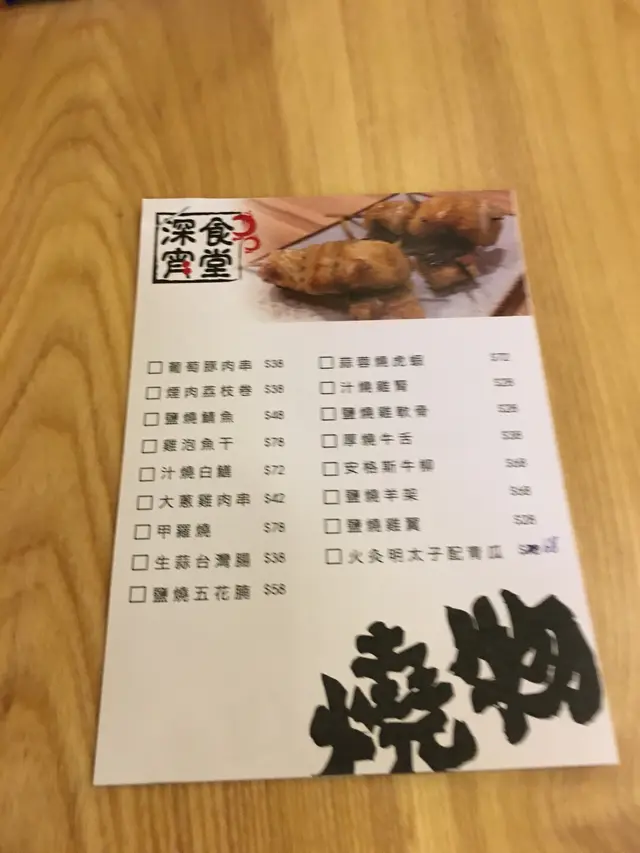 深食
宵堂
葡萄豚肉串 $38
煙肉荔枝卷 $38
鹽燒鯖魚 $48
雞泡魚干 $78
汁燒白鱔 $72
大蔥雞肉串 $42
甲羅燒 $78
生蒜台灣腸 $38
鹽燒五花腩 $58
蒜蓉燒虎蝦 $72
汁燒雞腎 $28
鹽燒雞軟骨 $28
厚燒牛舌 $38
安格斯牛柳 $68
鹽燒羊架 $68
鹽燒雞翼 $28
火灸明太子配青瓜 68
燒物